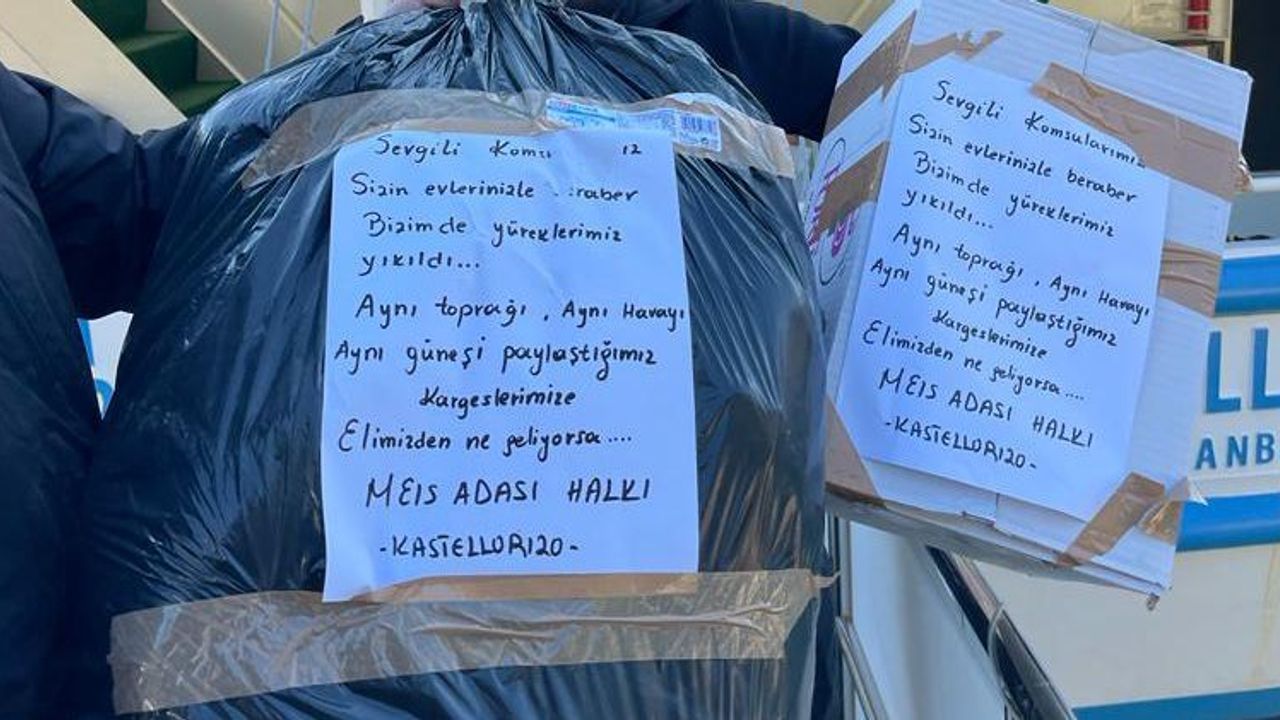 Sevgili Koms 12
Sizin evlerinizle raber
Bizimde yüreklerimiz
yıkıldı...
Aynı toprağı, Aynı Havayı
Aynı güneşi paylaştığımız
Kargeslerimize
Elimizden ne geliyorsa....
MEIS ADASI HALKI
-KASTELLORIZO-
Sevgili Komsularımız
Sizin evlerinizle beraber
Bizimde yüreklerimiz
yıkıldı...
Aynı toprağı, Aynı Havayı
Aynı güneşi paylaştığımız
Kargeslerimize
Elimizden ne geliyorsa....
MEIS ADASI HALKI
-KASTELLORIZO-
LL
ANB